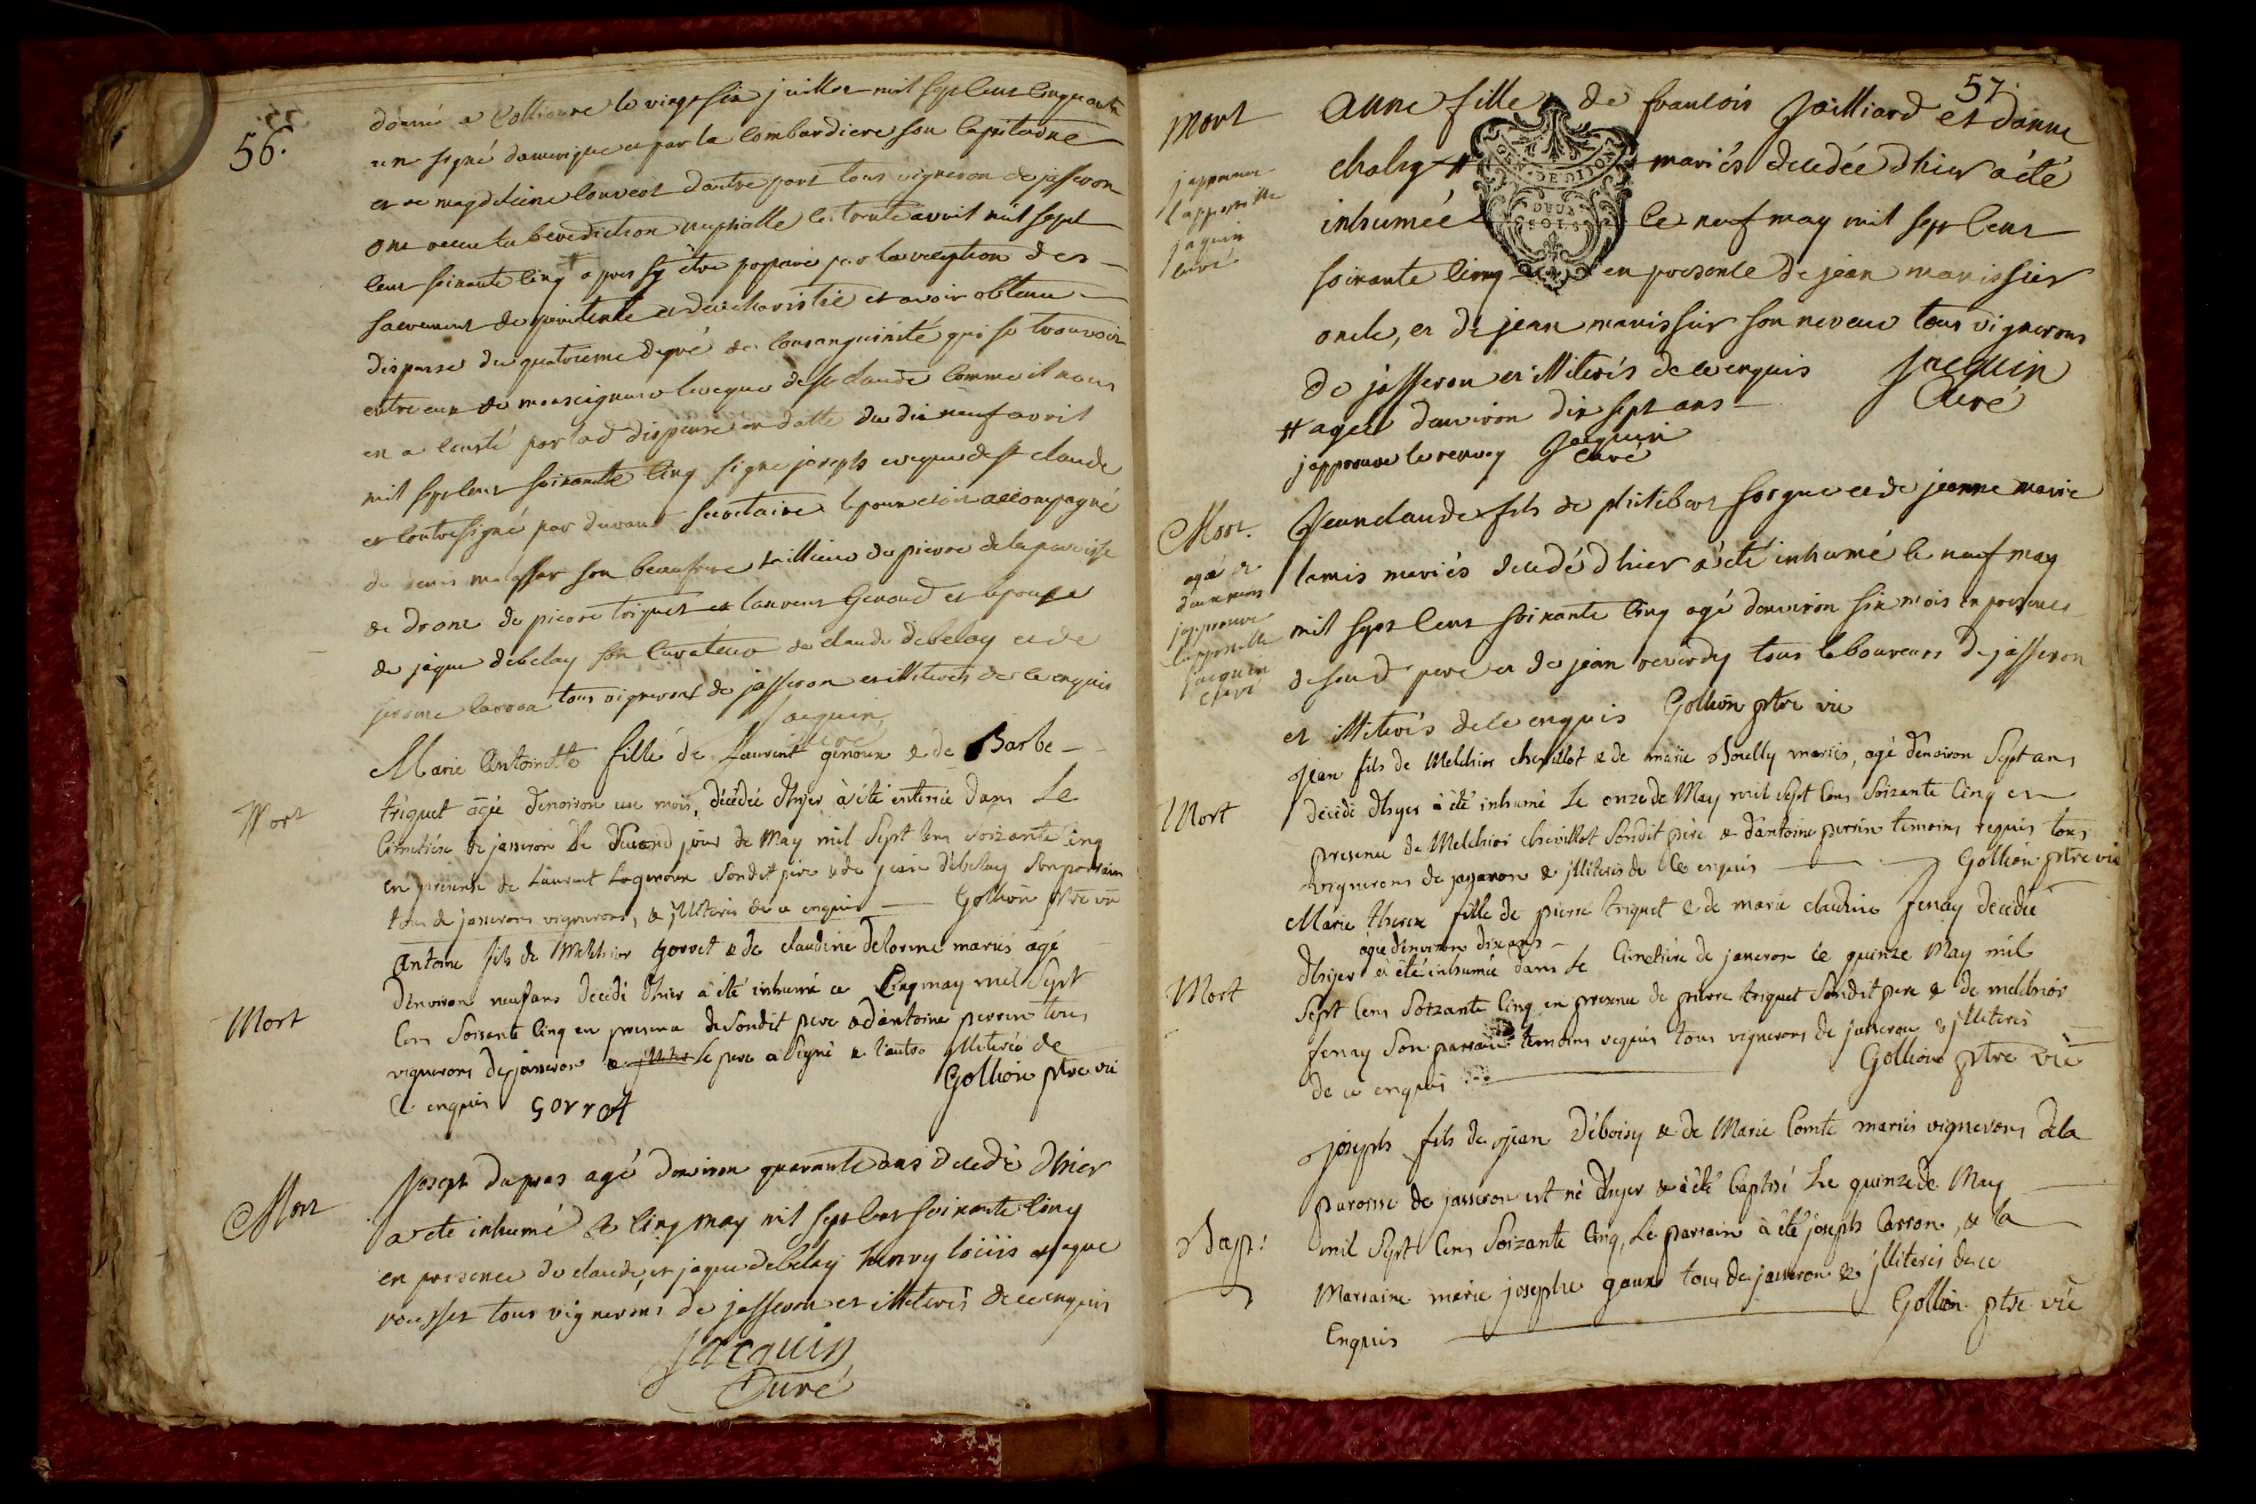 56.
donné a Collioure le vingt six juillet mil sept cent cinquante
un signé dauvergne et par la Combardiere son Capitaine
et de magdeleine Couvert dautre part tous vigneron de jasseron
ont receu la benediction nuptialle le trente avril mil sept
cent soixante cinq apres sy être preparé par la reception des
sacrement de penitente et deucharistie et avoir obtenu
dispense du quatrieme degré de consanguinité qui se trouvoit
entre eux de monseigneur leveque de st claude comme il nous
en a consté par lad dispense en datte du dix neuf avril
mil sept cent soixante cinq signe joseph eveque de st claude
et contresigné par durant secretaire lepoux etoit accompagné
de denis malessar son beaufrere tailleur de pierre de la paroisse
de drom de pierre triquet et laurent Genoud et lepouse
de jaque debelay son Curateur de claude debelay et de
jerome tous vignerons de jasseron et illiterés de ce enquis
Jacquin
Curé
Mort
Marie Antoinette fille de Laurent genoux & de Barbe
triquet âgé denviron un mois, décédée dhyer à été enterrée dans Le
Cimetière de jasseron Le Second jour de May mil Sept Cens Soixante Cinq
en présence de Laurent Legenoux Sondit père & de jean débelay Son parrain
tous de jasseron vignerons, & jlliterés de ce enquis Gollion ptre vic
Mort
Antoine fils de Melchior gorret & de claudine delorme mariés âgé
dénviron neuf ans décédé dhier à été inhumé ce Cinq may mil Sept
Cens Soixante Cinq en presence de Sondit pere & d'antoine perrin tous
vignerons de jasseron & Le pere a Signé & l'autre jlliteré de
ce enquis gorrot Gollion ptre vic
Mort
Joseph dupras agé denviron quarante ans decedé dhier
a été inhumé le cinq may mil sept cent soixante cinq
en presence de claude, et jaque debelay henry loüis et jaque
rousset tous vignerons de jasseron et illiterés de ce enquis
Jacquin
Curé
57.
Mort
Anne fille de francois Jailliard et danne
chaley # mariés decedée dhier a été
inhumée le neuf may mil sept cent
soixante cinq en presence de jean manissier
oncle, et de jean manissier son neveu tous vignerons
de jasseron et illiterés de ce enquis Jacquin
Curé
# agée denviron dix sept ans
japprouve le renvoy Jacquin
curé
japprouve
lapostille
jaquin
curé
GEN. DE DIJON
DEUX
SOLS
Mort.
Jean claude fils de philibert sorgue et de jeanne marie
lamis mariés decedé dhier a été inhumé le neuf may
mil sept cent soixante cinq agé denviron six mois en presence
de sond pere et de jean reverdy tous laboureurs de jasseron
et illiterés de ce enquis Gollion ptre vic
agé de
six mois
japprouve
lapostille
Jacquin
Curé
Mort
Jean fils de Melchior chevillot & de marie mariés, agé dénviron Sept ans
decédé dhyer à été inhumé Le onze de May mil Sept Cens Soixante Cinq en
présence de Melchior chevillot Sondit père & d'antoine perrin temoins requis tous
vignerons de jasseron & jlliterés de Ce enquis Gollion ptre vic
Mort
Marie therese fille de pierre triquet & de marie claudine fenay décédée
âgée dénviron dix ans
dhyer à été inhumée dans Le Cimetière de jasseron Le quinze May mil
Sept Cens Soixante Cinq en presence de pierre triquet Sondit pere & de melchior
fenay Son parrain temoins requis tous vignerons de jasseron & jlliterés
de ce enquis Gollion ptre vic
Bapt:
Joseph fils de Jean Déboisy & de Marie Comte mariés vignerons dela
paroisse de jasseron est né dhyer & à été baptisé Le quinze de May
mil Sept Cens Soixante Cinq, Le parrain à été joseph Carron, & la
Marraine marie josephe goux tous de jasseron & jlliterés de ce
Enquis Gollion ptre vic